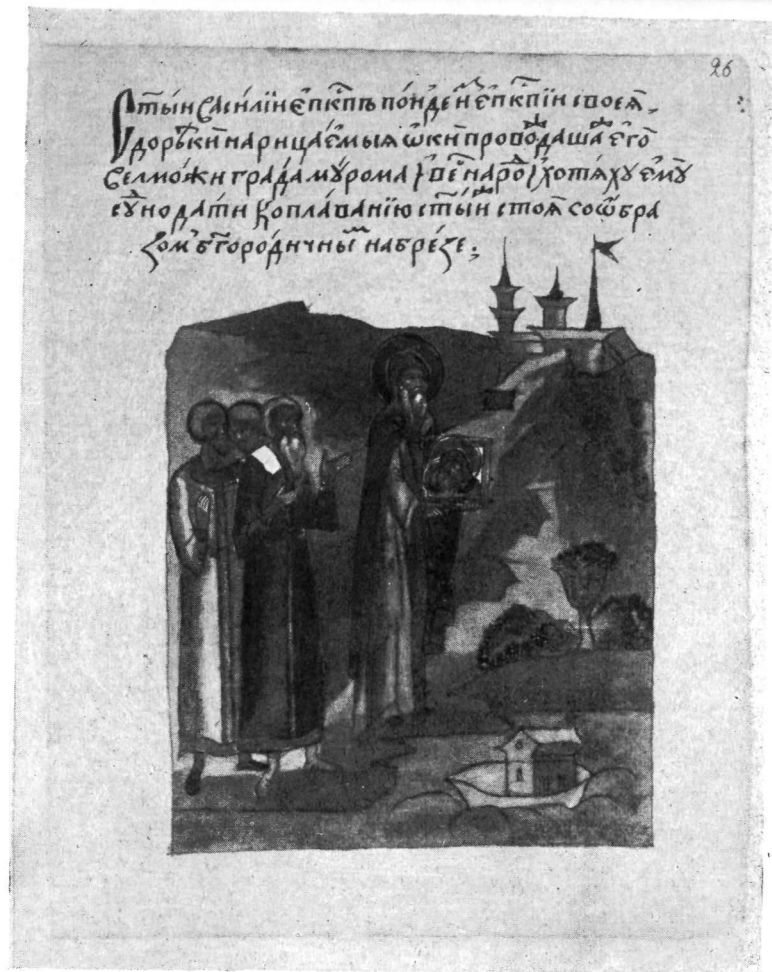 26
Стыи Василїи єпⷭ҇кпъ поиде ѿ єпⷭ҇кпїи своеѧ,
до рѣки нарицаемыѧ ѡки проводѧша єго
велможи града мурома и весь народ хотѧху ємꙋ
сꙋдно дати к оплаванїю стыи стоѧ со ѡбра
зом бг҃ородичным на брезе: